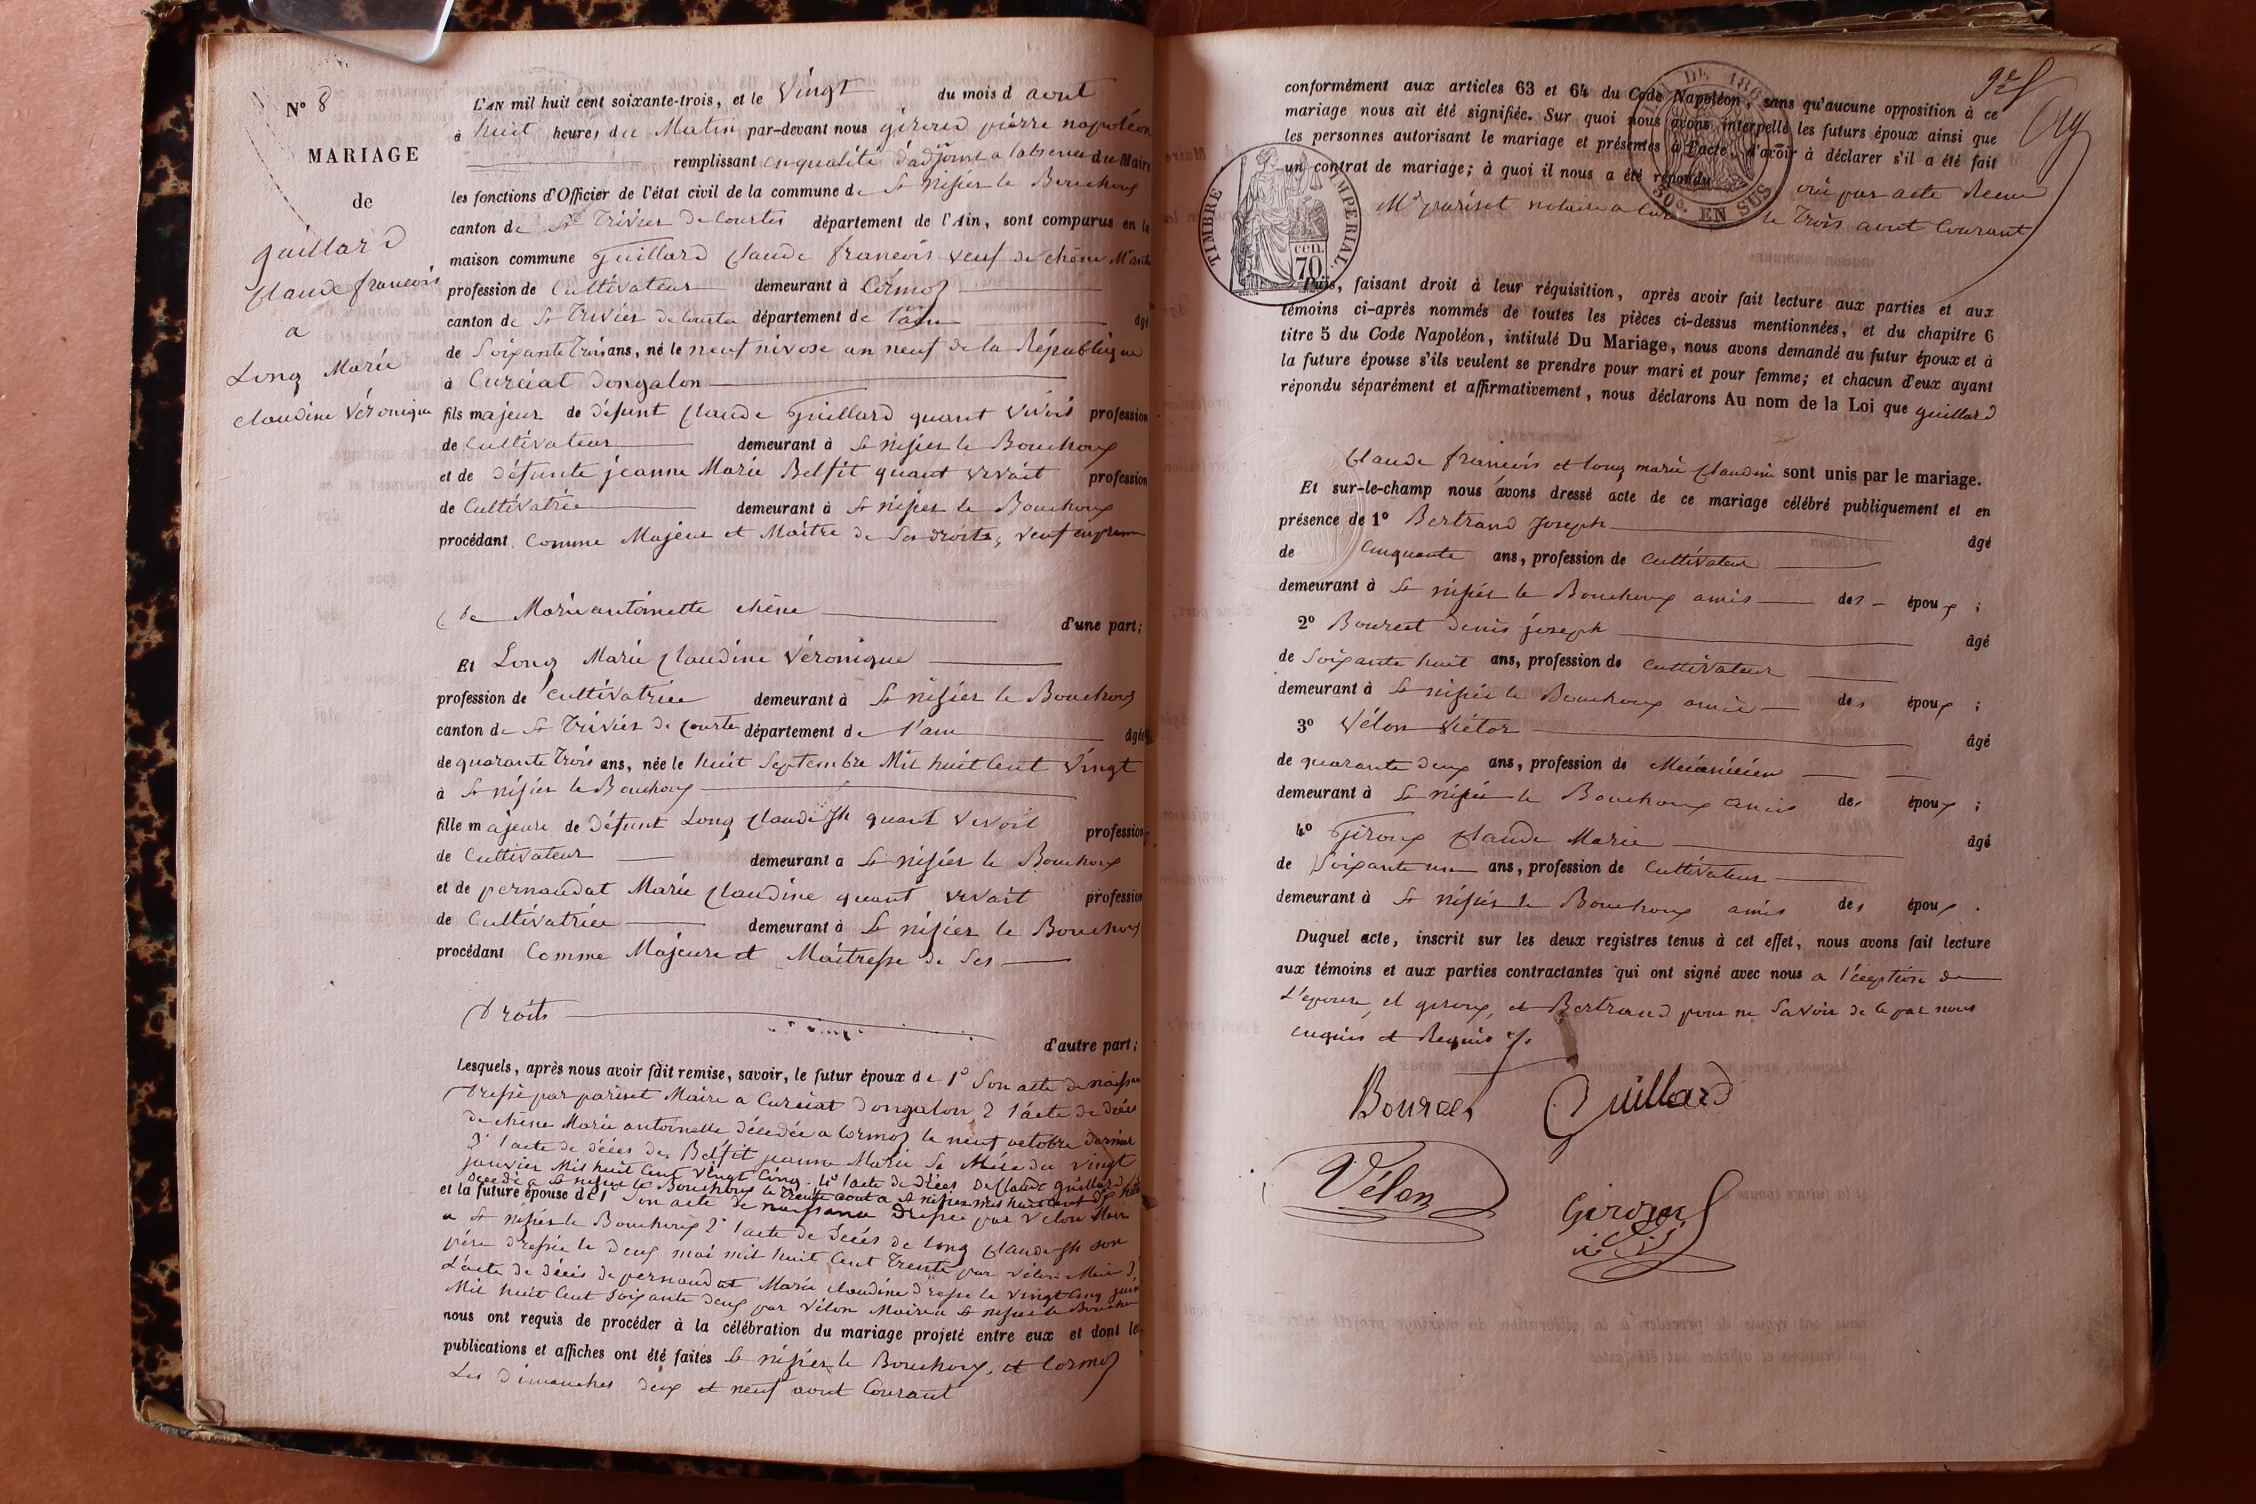 N° 8
MARIAGE
de
guillard
Claude françois
a
Long Marie
claudine Véronique
L'AN mil huit cent soixante-trois, et le Vingt du mois d août
à huit heures du Matin par-devant nous giroud pierre napoléon
remplissant en qualité d'adjoint a l'absence du Maire
les fonctions d'Officier de l'état civil de la commune de St nisier le Bouchoux
canton de St Trivier de Courtes département de l'Ain, sont comparus en la
maison commune Guillard Claude françois veuf de chêne Mie ante
profession de Cultivateur demeurant à Cormoz
canton de St Trivier de Courte département de l'ain âgé
de Soixante Trois ans, né le neuf nivose an neuf de la République
à Curciat Dongalon
fils majeur de défunt Claude Guillard quant vivois profession
de Cultivateur demeurant à St nisier le Bouchoux
et de défunte jeanne Marie Belfit quant vivait profession
de Cultivatrice demeurant à St nisier le Bouchoux
procédant Comme Majeur et Maître de Ses droits, veuf en prem
de Marie antoinette chêne
d'une part;
Et Long Marie Claudine Véronique
profession de Cultivatrice demeurant à St nisier le Bouchoux
canton de St Trivier de Courte département de l'ain âgée
de quarante Trois ans, née le huit Septembre Mil huit Cent Vingt
à St nisier le Bouchoux
fille majeure de défunt Long Claude Jh quant vivoit profession
de Cultivateur demeurant à St nisier le Bouchoux
et de pernaudat Marie Claudine quant vivait profession
de Cultivatrice demeurant à St nisier le Bouchoux
procédant Comme Majeure et Maîtresse de Ses
Droits
d'autre part;
Lesquels, après nous avoir fait remise, savoir, le futur époux de 1° Son acte de naissan
Dressé par pariset Maire a Curciat Dongalon 2 l'acte de décès
de chêne Marie antoinette décédée a Cormoz le neuf octobre dernier
3° l'acte de décès de Belfit jeanne Marie Sa Mère du vingt
janvier Mil huit Cent Vingt Cinq. 4° l'acte de décès De Claude guillard
décédé a St nisier le Bouchoux le Trente aout a St nisier mil huit cent
et la future épouse de 1° Son acte de naissance Dressée par Vélon Maire
a St nisier le Bouchoux 2° l'acte de Décès de Long Claude Jh son
père dressée le deux mai mil huit Cent Trente par Vélon Maire 3°
L'acte de décès de pernaudat Marie claudine dressé le vingt Cinq juin
Mil huit Cent Soixante deux par Vélon Maire a St nisier le Bouchoux
nous ont requis de procéder à la célébration du mariage projeté entre eux et dont les
publications et affiches ont été faites St nisier le Bouchoux, et Cormoz
Les Dimanches deux et neuf aout Courant
conformément aux articles 63 et 64 du Code Napoléon, sans qu'aucune opposition à ce
mariage nous ait été signifiée. Sur quoi nous avons interpellé les futurs époux ainsi que
les personnes autorisant le mariage et présentes à l'acte, d'avoir à déclarer s'il a été fait
un contrat de mariage; à quoi il nous a été répondu oui par acte Recue
Me pariset notaire a le Trois aout Courant
TIMBRE IMPERIAL
70 cen.
DE 186
50c. EN SUS
Puis, faisant droit à leur réquisition, après avoir fait lecture aux parties et aux
témoins ci-après nommés de toutes les pièces ci-dessus mentionnées, et du chapitre 6
titre 5 du Code Napoléon, intitulé Du Mariage, nous avons demandé au futur époux et à
la future épouse s'ils veulent se prendre pour mari et pour femme; et chacun d'eux ayant
répondu séparément et affirmativement, nous déclarons Au nom de la Loi que guillard
Claude françois et Long marie Claudine sont unis par le mariage.
Et sur-le-champ nous avons dressé acte de ce mariage célébré publiquement et en
présence de 1° Bertrand Joseph âgé
de Cinquante ans, profession de Cultivateur
demeurant à St nisier le Bouchoux amis des époux ;
2° Bourcet Denis joseph âgé
de Soixante huit ans, profession de Cultivateur
demeurant à St nisier le Bouchoux amis des époux ;
3° Vélon Victor âgé
de quarante deux ans, profession de Mécanicien
demeurant à St nisier le Bouchoux amis des époux ;
4° Giroux Claude Marie âgé
de Soixante un ans, profession de Cultivateur
demeurant à St nisier le Bouchoux amis des époux .
Duquel acte, inscrit sur les deux registres tenus à cet effet, nous avons fait lecture
aux témoins et aux parties contractantes qui ont signé avec nous a l'éception de
L'épouse, et giroux, et Bertrand pour ne Savoir de ce par nous
enquis et Requis
Bourcet Guillard
Vélon Giroud